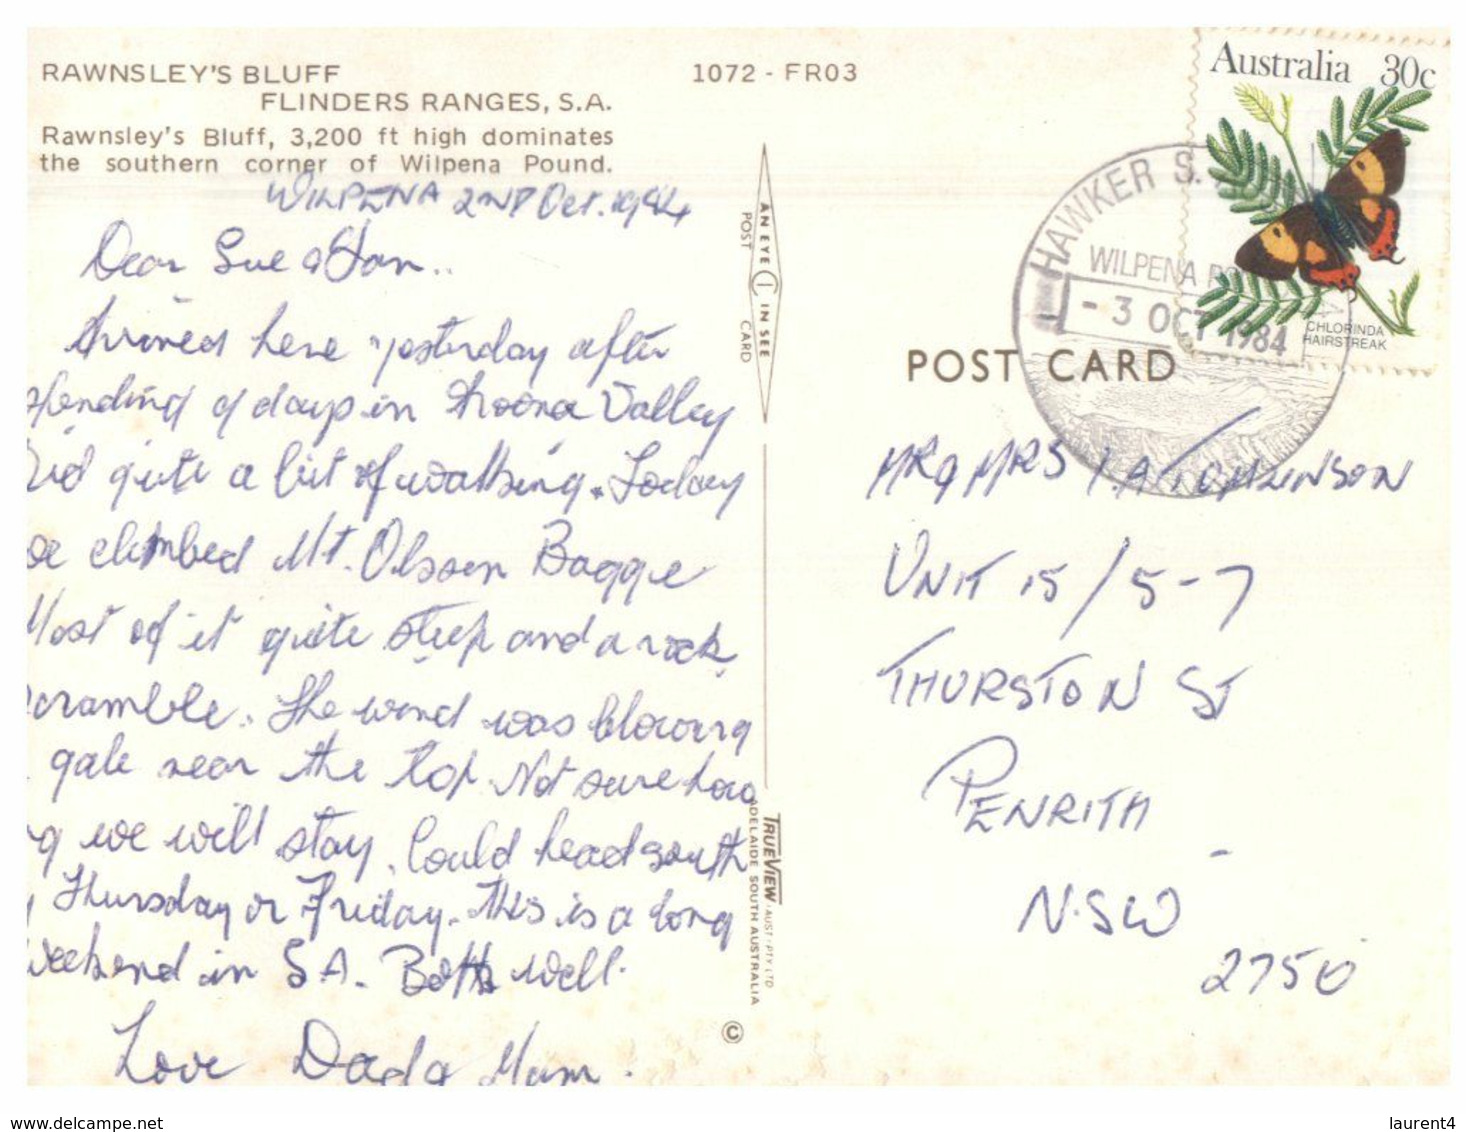 RAWNSLEY'S BLUFF
FLINDERS RANGES, S.A.
Rawnsley's Bluff, 3,200 ft high dominates
the southern corner of Wilpena Pound.
1072 - FR03
WILPENA 2ND Oct. 1984
Dear Sue & Ian..
Arrived here yesterday after
spending 9 days in Arkoona Valley
Did quite a bit of walking. Today
we climbed Mt. Olssen Bagge
Most of it quite steep and a rock
scramble. The wind was blowing
gale near the top. Not sure how
we will stay. Could head south
Thursday or Friday. This is a long
weekend in S.A. Both well.
Love Dad & Mum.
AN EYE IN SEE
POST CARD
TRUEVIEW (AUST) PTY LTD
ADELAIDE SOUTH AUSTRALIA
©
Australia 30c
CHLORINDA
HAIRSTREAK
HAWKER S.
WILPENA
- 3 OCT 1984
POST CARD
MR & MRS I.A TOMLINSON
UNIT 15/5-7
THURSTON ST
PENRITH -
N.SW
2750
www.delcampe.net
laurent4